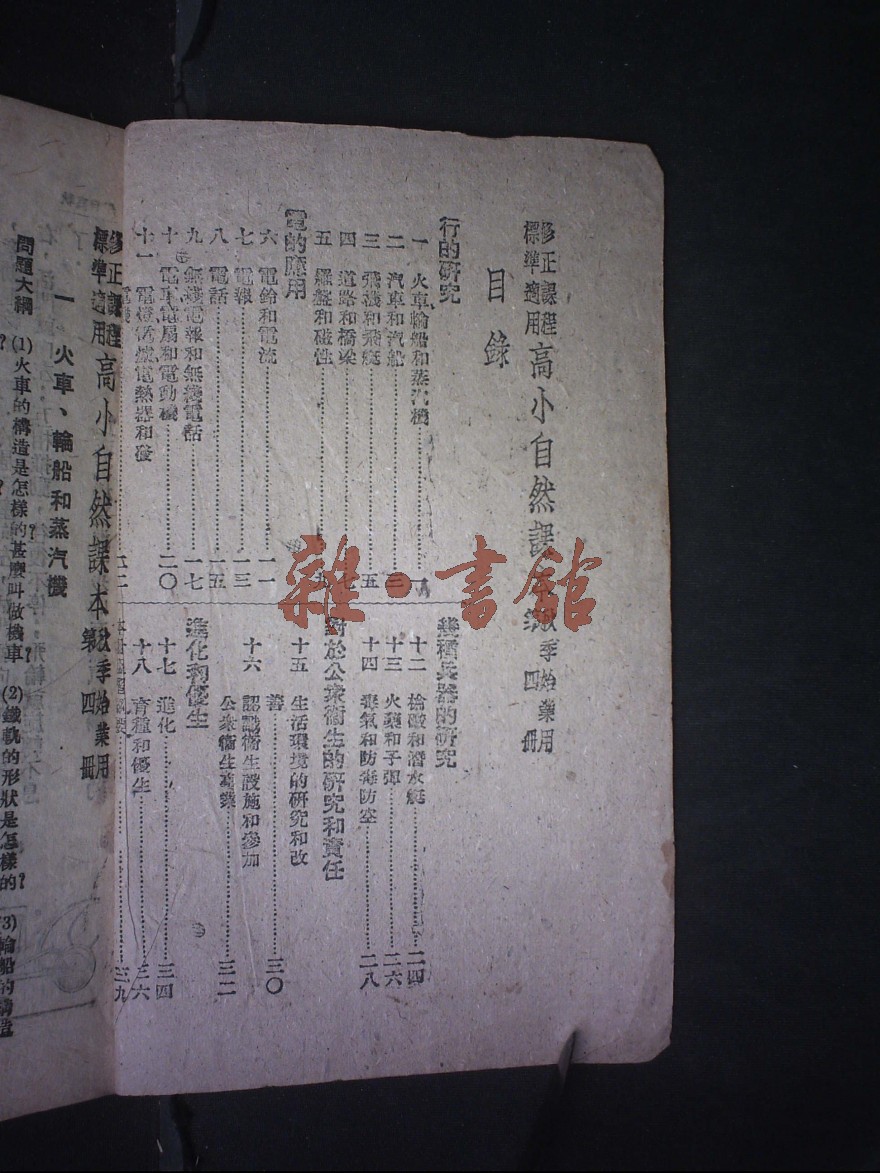 修正課程
標準適用
高小自然課本
秋季始業用
第四冊
目錄
行的研究
一 火車輪船和蒸汽機……一
二 汽車和汽船……三
三 飛機和飛艇……五
四 道路和橋梁……七
五 羅盤和磁性……九
電的應用
六 電鈴和電流……一一
七 電報……一三
八 電話……一五
九 無綫電報和無綫電話……一七
十 電車電扇和電動機……二〇
十一 電燈電爐電熱器和發
電機……二二
幾種兵器的研究
十二 槍礮和潛水艇……二四
十三 火藥和子彈……二六
十四 毒氣和防毒防空……二八
對於公衆衞生的研究和責任
十五 生活環境的研究和改
善……三〇
十六 認識衞生設施和參加
公衆衞生事業……三二
進化和優生
十七 進化……三四
十八 育種和優生……三六
……三九
雜·書館
修正課程
標準適用
高小自然課本
秋季始業用
第四冊
一 火車、輪船和蒸汽機
問題大綱 (1)火車的構造是怎樣的?甚麼叫做機車? (2)鐵軌的形狀是怎樣的? (3)輪船的構造